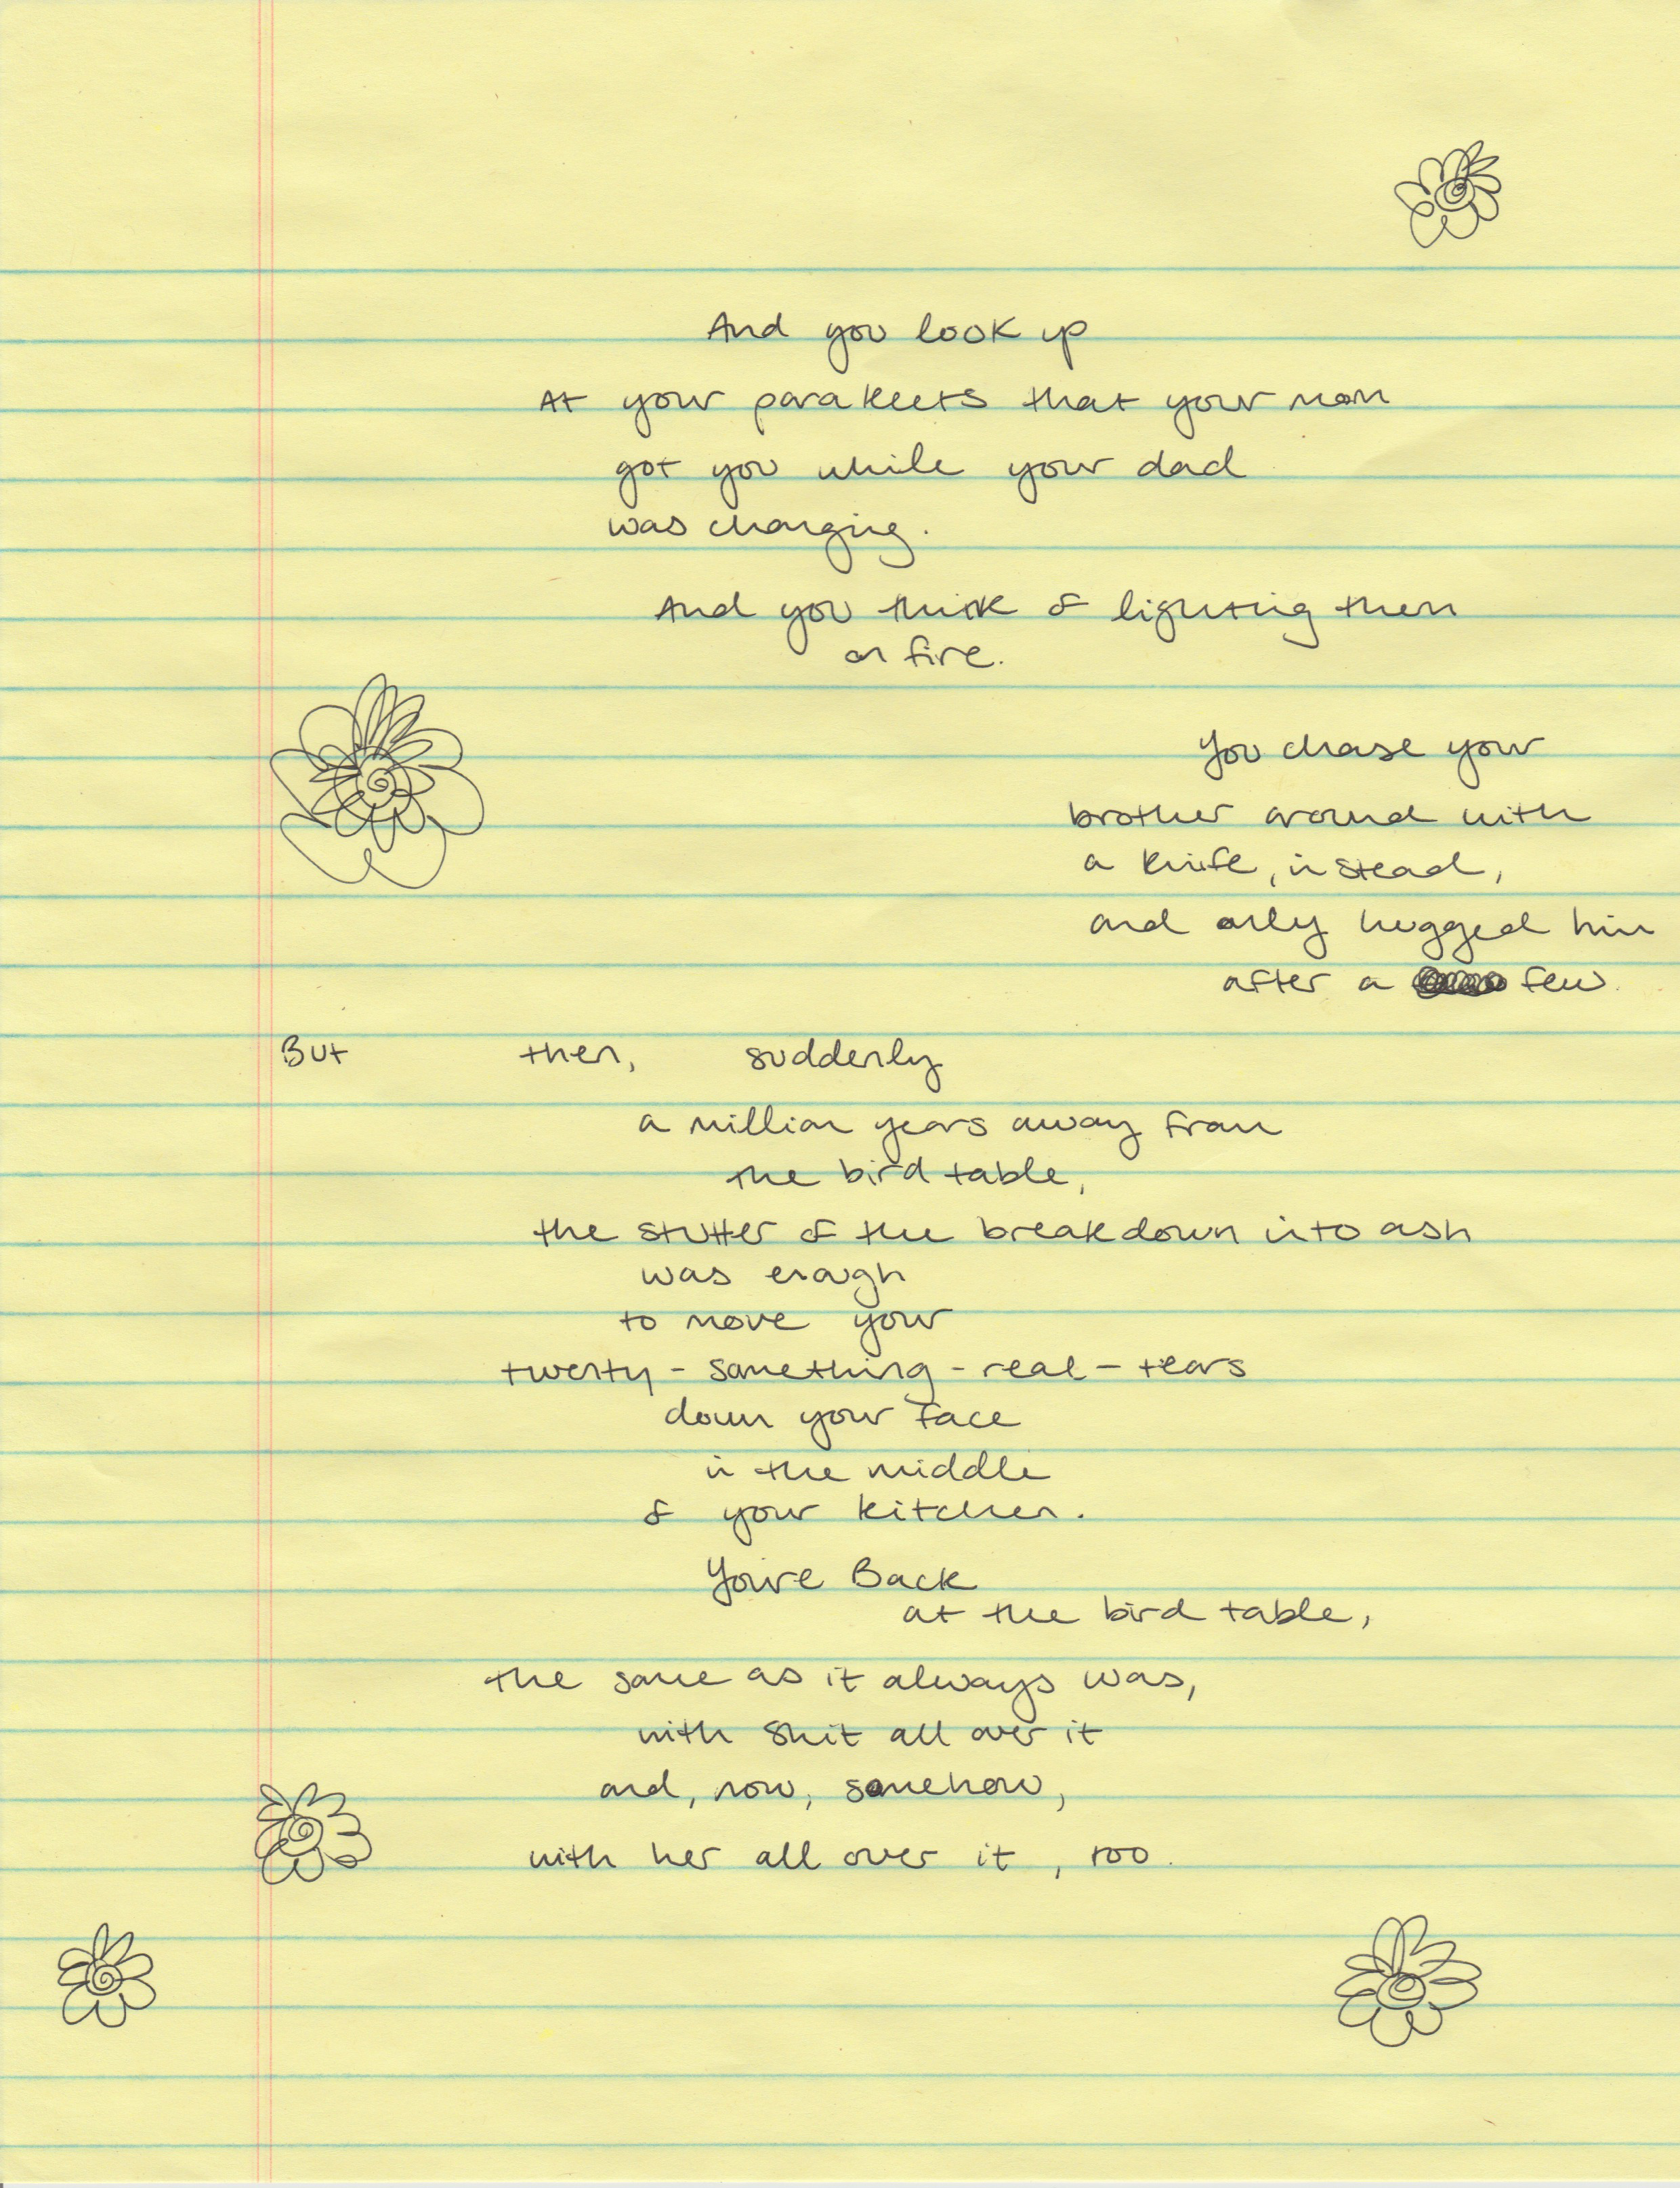 And you look up
At your parakeets that your mom
got you while your dad
was changing.
And you think of lighting them
on fire.
You chase your
brother around with
a knife, instead,
and only hugged him
after a few.
But then, suddenly
a million years away from
the bird table,
the stutter of the breakdown into ash
was enough
to move your
twenty-something-real-tears
down your face
in the middle
of your kitchen.
You're Back
at the bird table,
the same as it always was,
with shit all over it
and, now, somehow,
with her all over it, too.